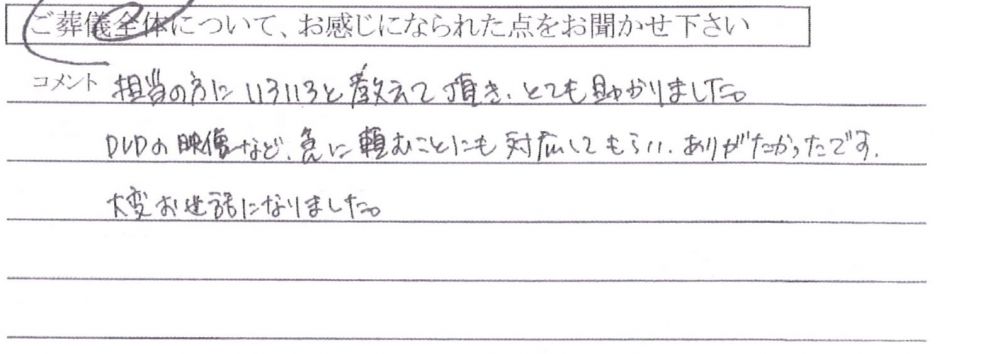 ご葬儀全体について、お感じになられた点をお聞かせ下さい
コメント 担当の方にいろいろと教えて頂き、とても助かりました。
DVDの映像など、急に頼むことにも対応してもらい、ありがたかったです。
大変お世話になりました。